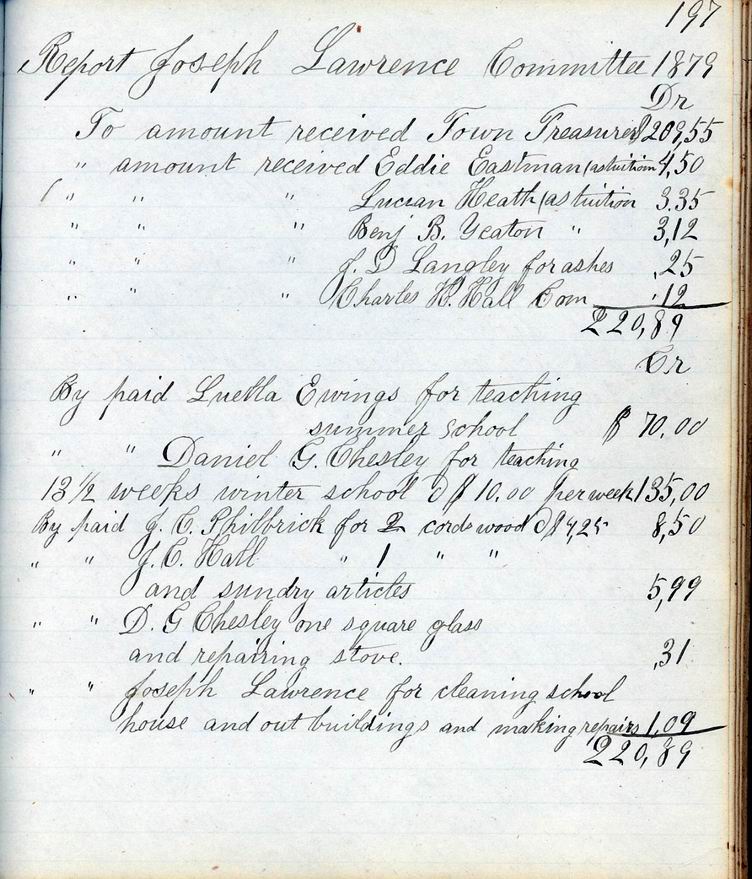 197
Report Joseph Lawrence Committee 1879
Dr
To amount received Town Treasurer $209,55
" amount received Eddie Eastman (as tuition 4,50
" " " Lucian Heath (as tuition 3.35
" " " Benj B. Yeaton " 3,12
" " " J. D Langley for ashes ,25
" " " Charles H. Hall Com ,12
220,89
Cr
By paid Luella Ewings for teaching
summer school $ 70,00
" " Daniel G. Chesley for teaching
13 1/2 weeks winter school @ $10.00 per week 135,00
By paid J. C. Philbrick for 2 cords wood @ $4,25 8,50
" " J. C. Hall " 1 " "
and sundry articles 5,99
" " D. G Chesley one square glass
and repairing stove. ,31
" " Joseph Lawrence for cleaning school
house and out buildings and making repairs 1,09
220,89